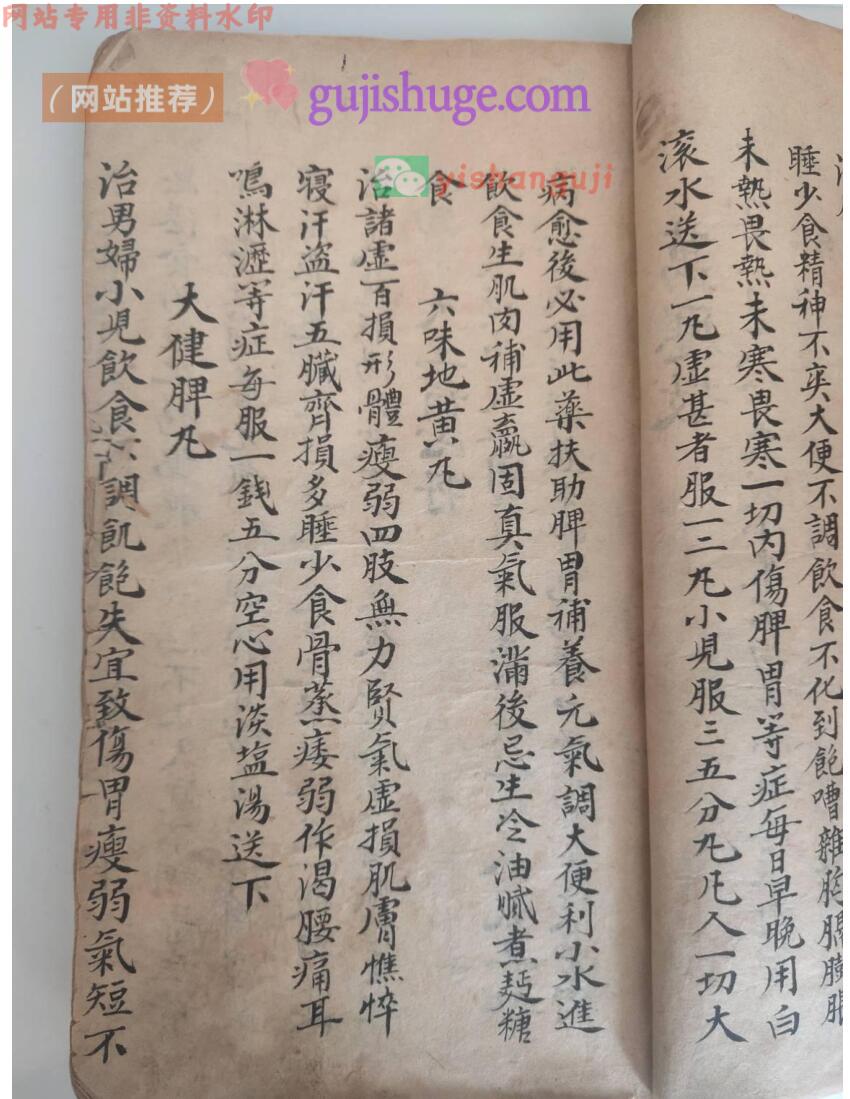 网站专用非资料水印
（网站推荐）
gujishuge.com
yishanguji
睡少食精神不爽大便不調飲食不化到飽嘈雜胸膈膨脹
未熱畏熱未寒畏寒一切內傷脾胃等症每日早晚用白
滚水送下一九虛甚者服一二九小兒服三五分九凡人一切大
病愈後必用此藥扶助脾胃補養元氣調大便利小水進
飲食生肌肉補虛羸固真氣服滿後忌生冷油膩煮麪糖
食
六味地黄九
治諸虛百損形體瘦弱四肢無力賢氣虛損肌膚憔悴
寝汗盗汗五臟齊損多睡少食骨蒸痿弱作渴腰痛耳
鳴淋瀝等症每服一錢五分空心用淡塩湯送下
大健脾九
治男婦小兒飲食不調飢飽失宜致傷胃瘦弱氣短不